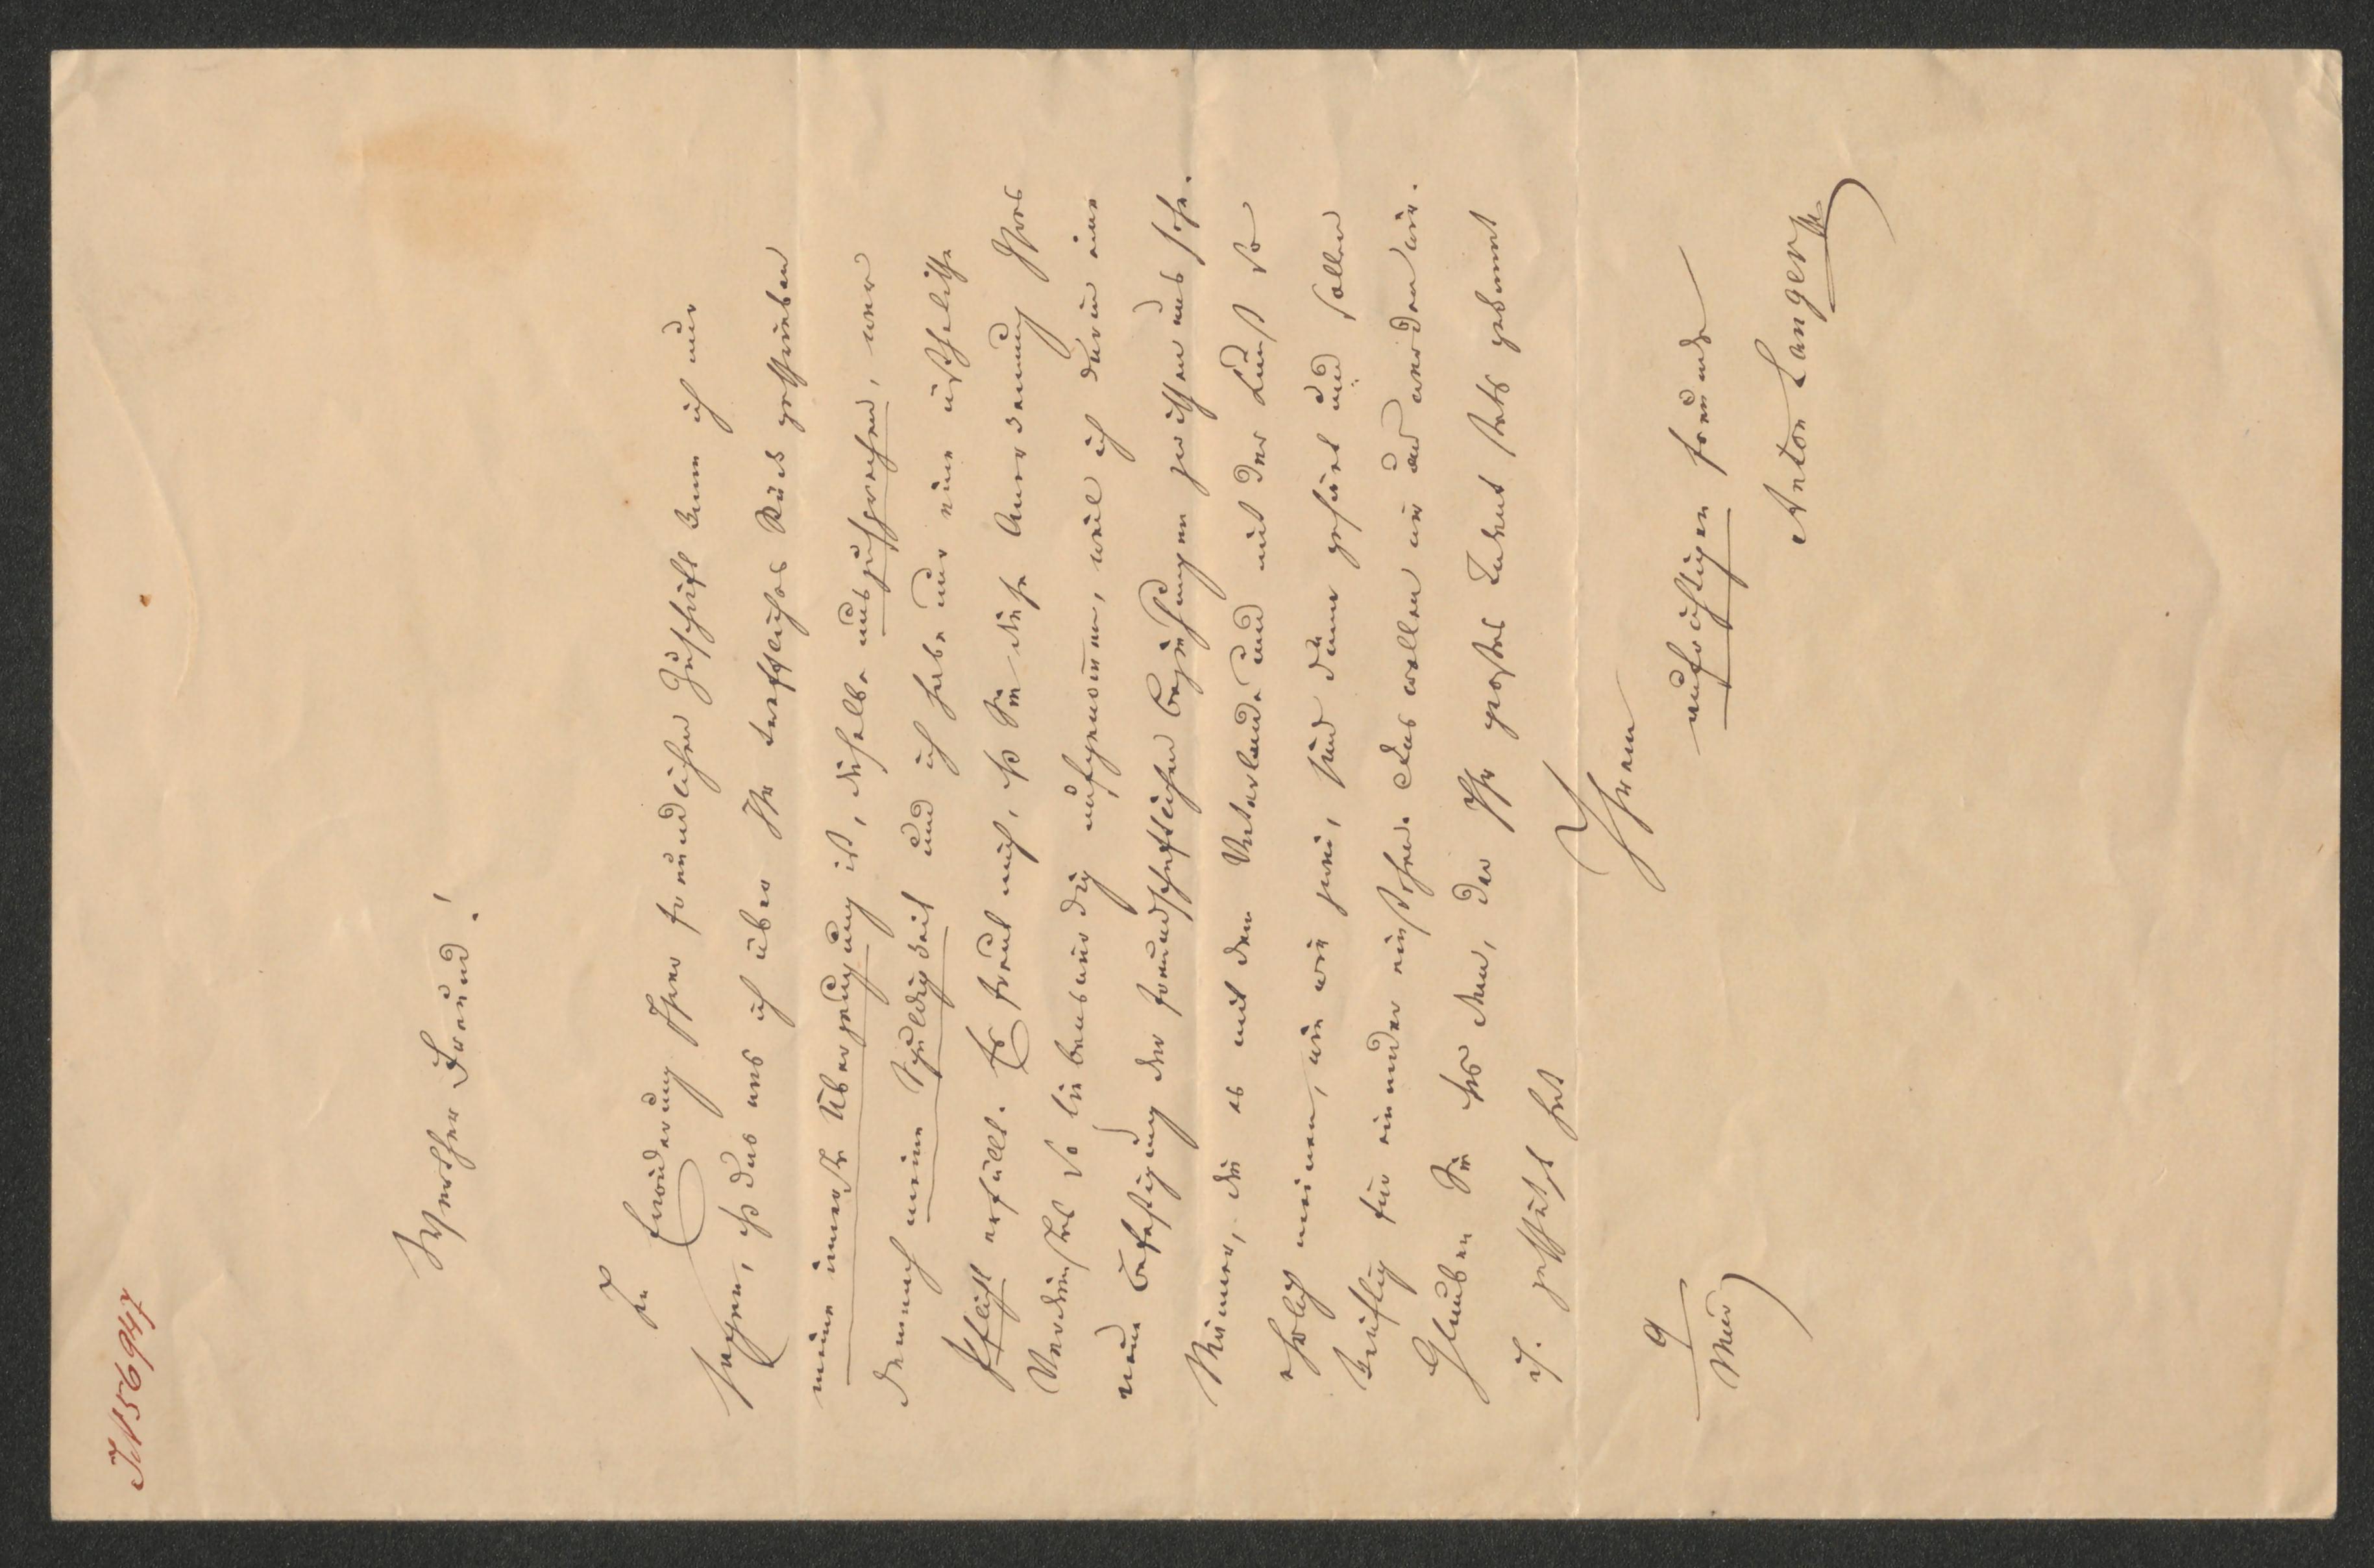 IN 56947
Werther Freund!
In Erwiderung Ihrer freundlichen Zuschrift kann ich nur
sagen, daß das was ich über Ihr treffliches Stück geschrieben
meine innerste Überzeugung ist, dieselbe auszusprechen, war
demnach meine Schuldigkeit und ich habe nur eine ästhetische
Pflicht erfüllt. Es freut mich, daß Sie diese Anerkennung Ihres
Verdienstes so liebenswürdig aufgenommen, weil ich darin eine
neue Befestigung der freundschaftlichen Beziehungen zwischen uns sehe.
Männer, die es mit dem Vaterlande und mit der Kunst so
ehrlich meinen, wie wir zwei, sind dünn gesät und sollen
kräftig für einander einstehen. Das wollen wir und werden wir.
Glauben Sie das dem, der Ihr großes Talent stets gekannt
u. geschätzt hat
Ihrem
aufrichtigen Freunde
Anton Langer
9
März